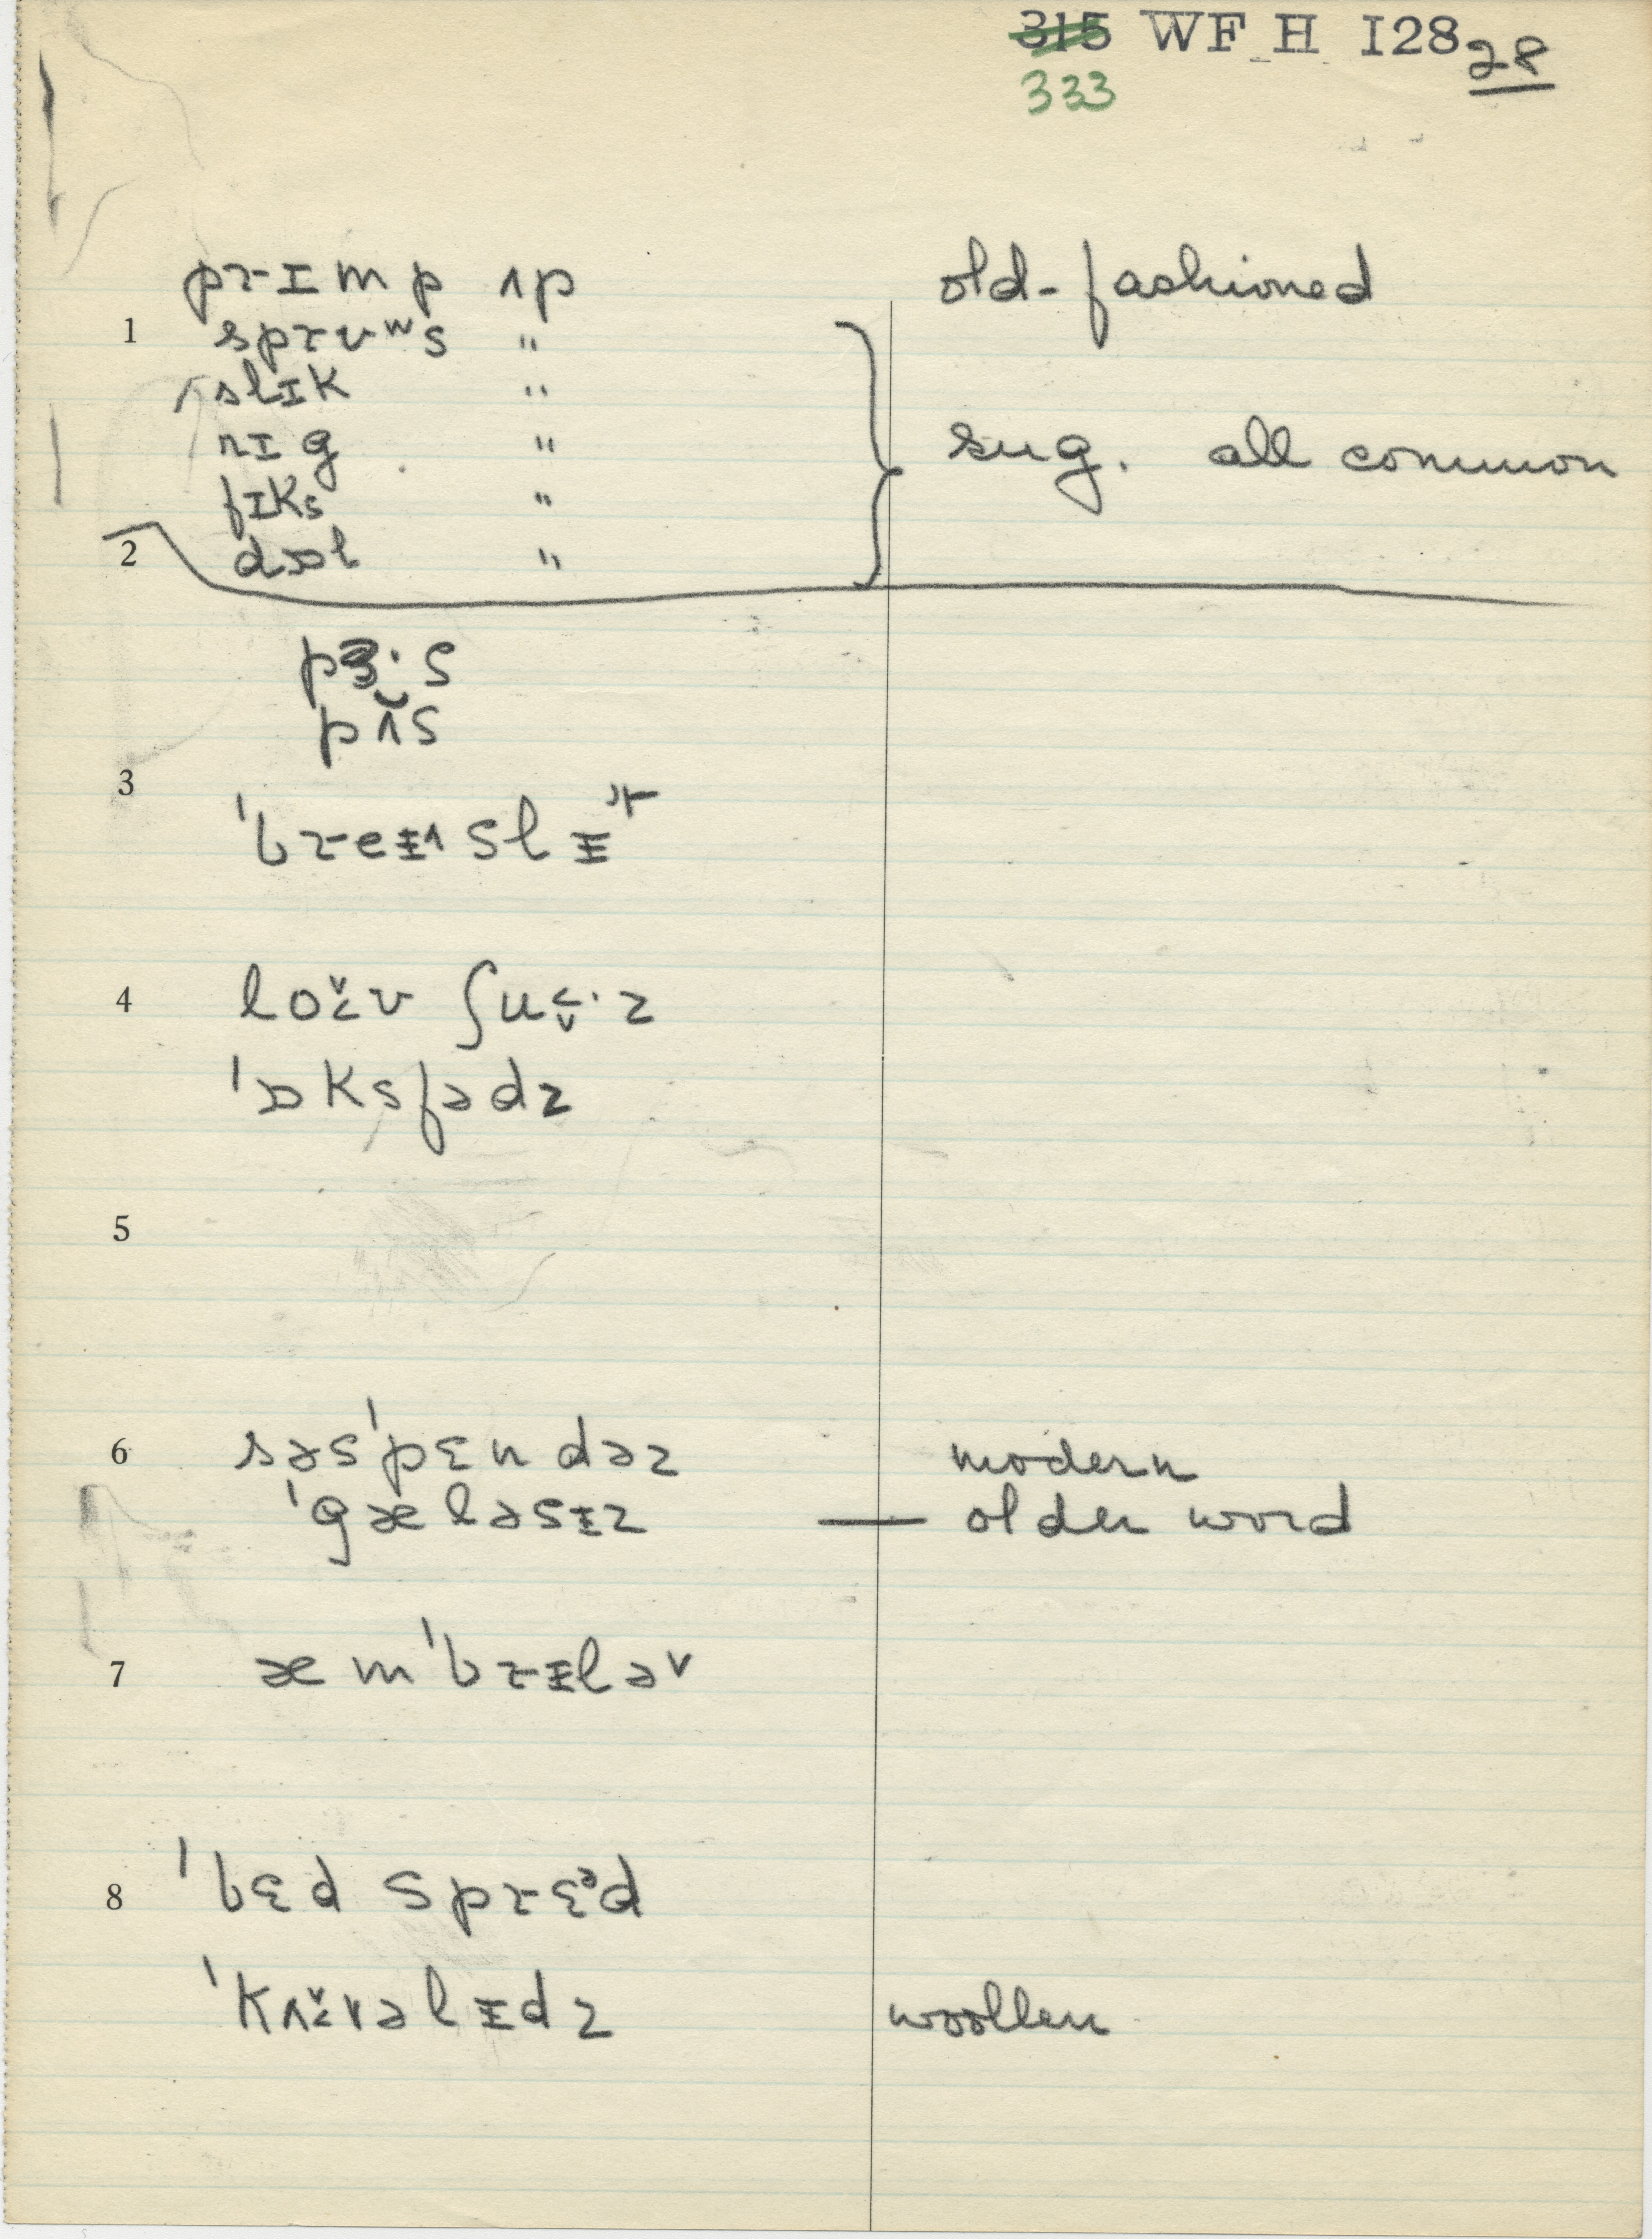 315 WF H I28 28
333
prɪmp ʌp old-fashioned
1 sprʊʷs "
slɪk "
rɪg " sug. all common
fɪks "
2 dɒl "
pɜ·s
pʌ̆s
3
ˈbreɪ^slɪ
4 loʊ̌v ʃuʊ̬·z
ˈɒksfədz
5
6 səsˈpɛndəz modern
ˈgæləsɪz — older word
7 æmˈbrɪləᵛ
8 ˈbɛd sprɛᵊd
ˈkʌʊ̌vəlɪdz woollen